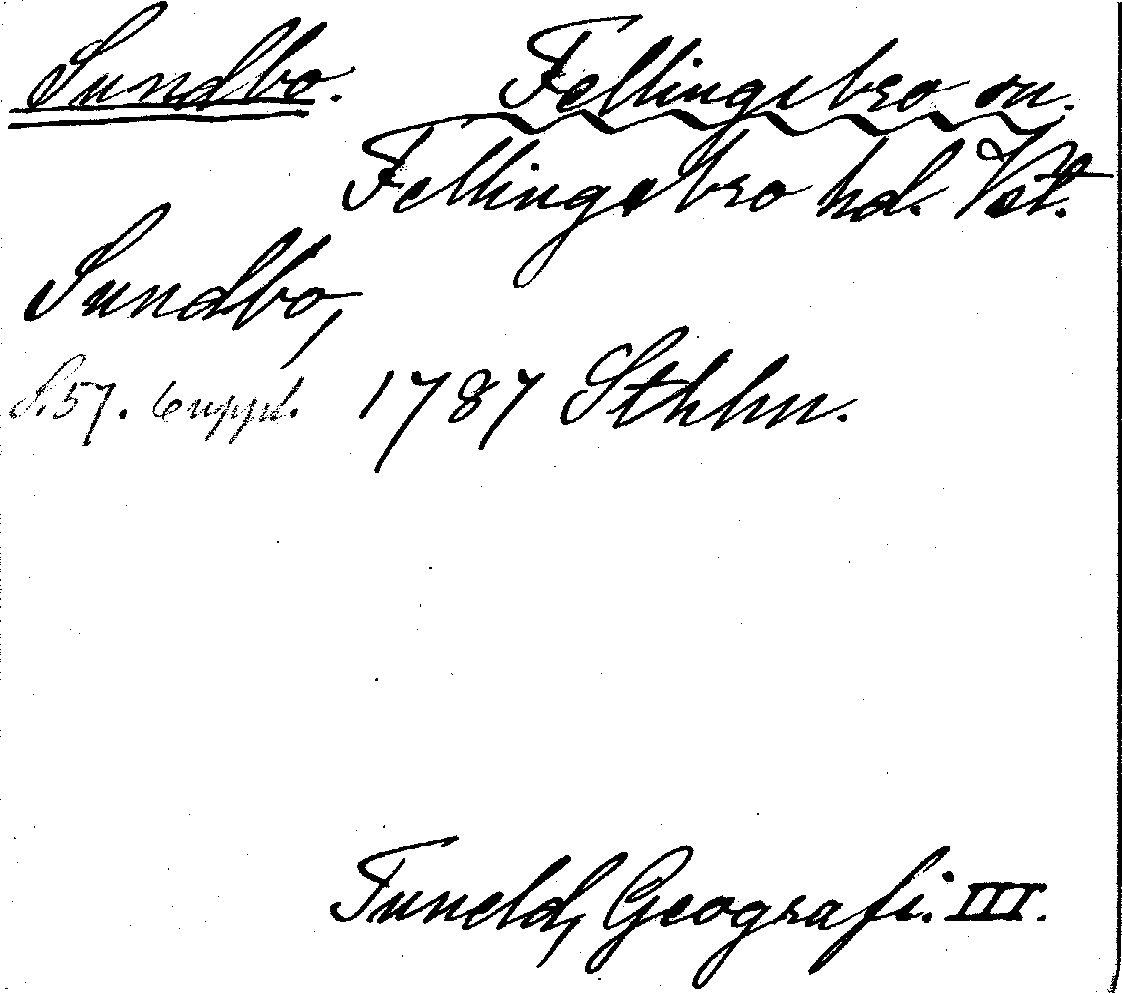 Sundbo. Fellingsbro sn.
Fellingsbro hd. Vstl.
Sundbo,
S. 57. 6 uppl. 1787 Sthlm.
Tuneld, Geografi. III.